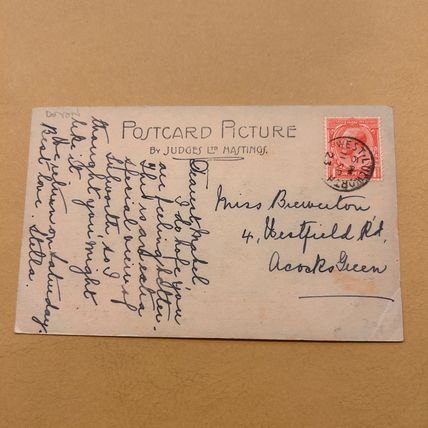 DEVON
POSTCARD PICTURE
BY JUDGES LTD HASTINGS.
Dear Mabel,
I do hope you
are feeling better.
This is an extra
special view of
so I
thought you might
like it.
We return on Saturday
Best love. Stella.
Miss Brewerton
4, Westfield Rd,
Acocks Green
WEST
23